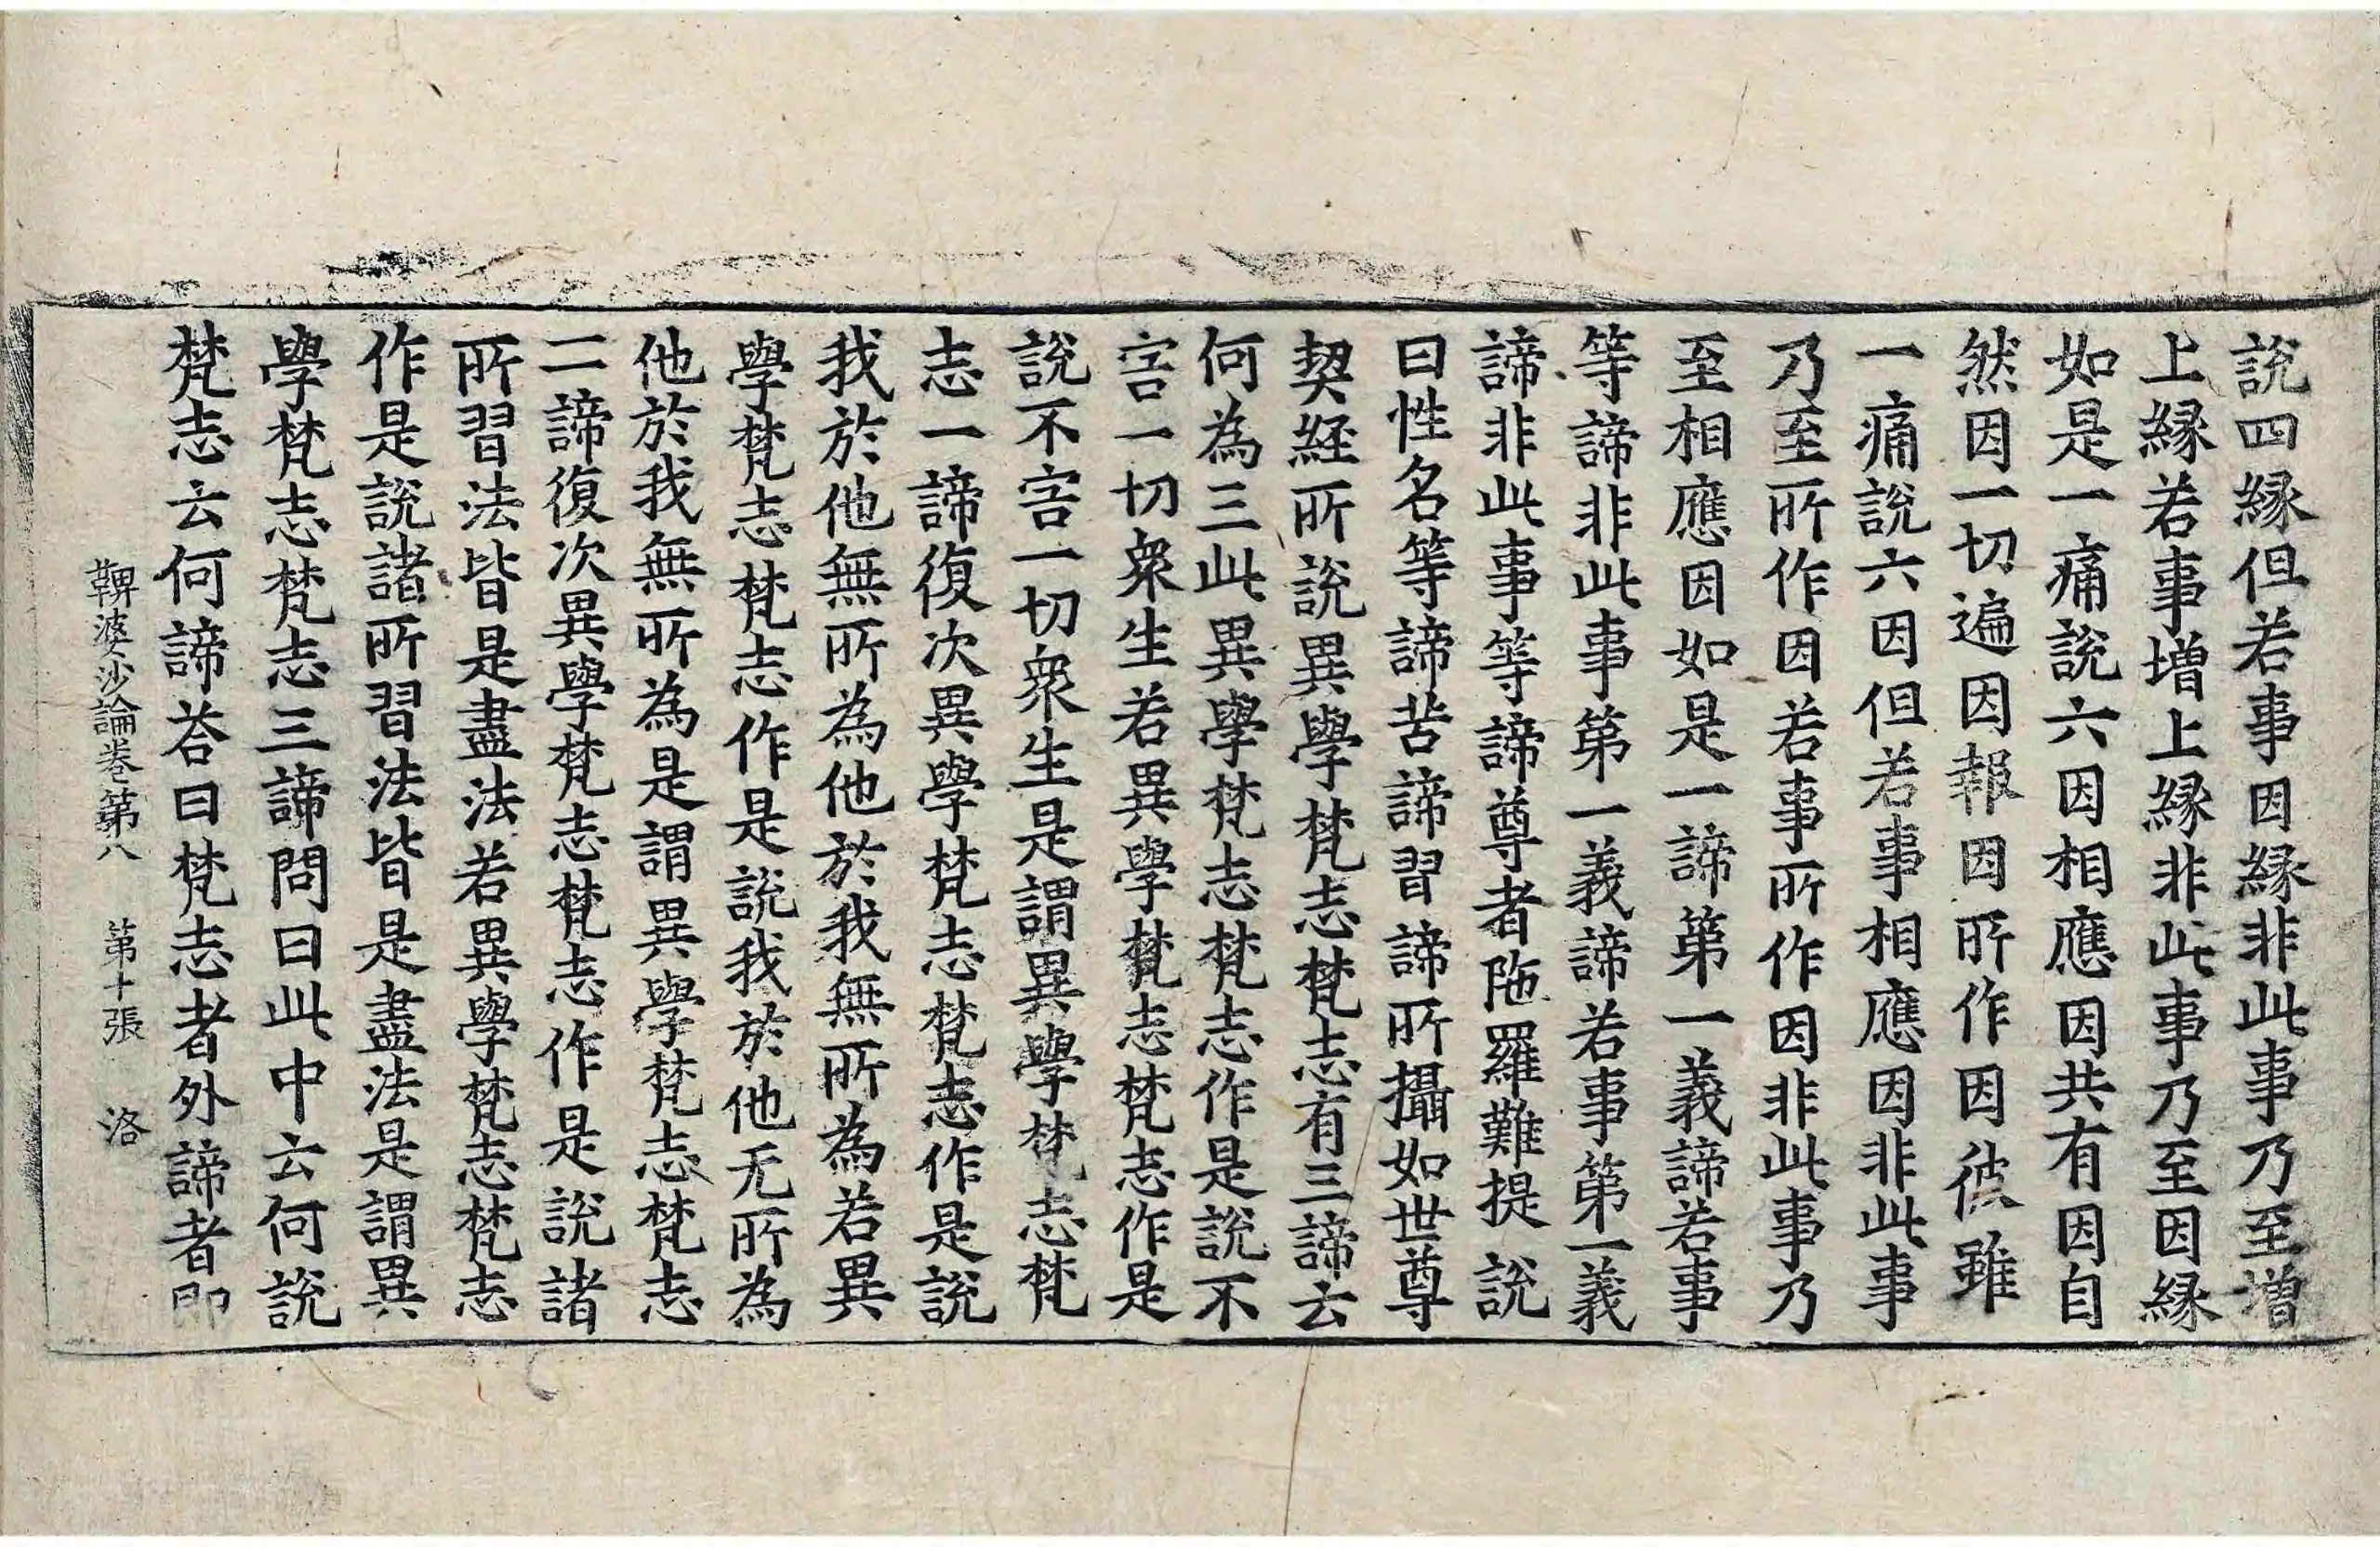 説四緣但若事因緣非此事乃至增
上緣若事增上緣非此事乃至因緣
如是一痛説六因相應因共有因自
然因一切遍因報因所作因彼雖
一痛説六因但若事相應因非此事
乃至所作因若事所作因非此事乃
至相應因如是一諦第一義諦若事
等諦非此事第一義諦若事第一義
諦非此事等諦尊者陁羅難提説
曰性名等諦苦諦習諦所攝如世尊
契経所説異學梵志梵志有三諦云
何為三此異學梵志梵志作是説不
害一切衆生若異學梵志梵志作是
説不害一切衆生是謂異學梵志梵
志一諦復次異學梵志梵志作是説
我於他無所為他於我無所為若異
學梵志梵志作是説我於他无所為
他於我無所為是謂異學梵志梵志
二諦復次異學梵志梵志作是説諸
所習法皆是盡法若異學梵志梵志
作是説諸所習法皆是盡法是謂異
學梵志梵志三諦問曰此中云何説
梵志云何諦荅曰梵志者外諦者即
鞞婆沙論卷第八 第十張 洛